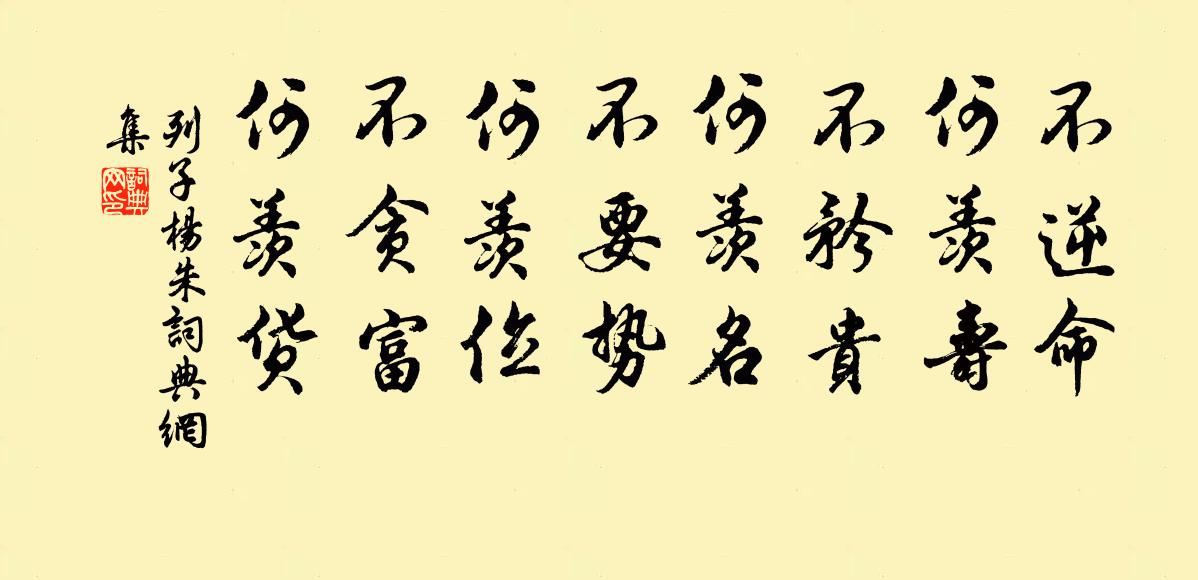 不逆命
何羡壽
不矜貴
何羡名
不要勢
何羡位
不貪富
何羡货
列子楊朱詞典網
集
詞典
网印